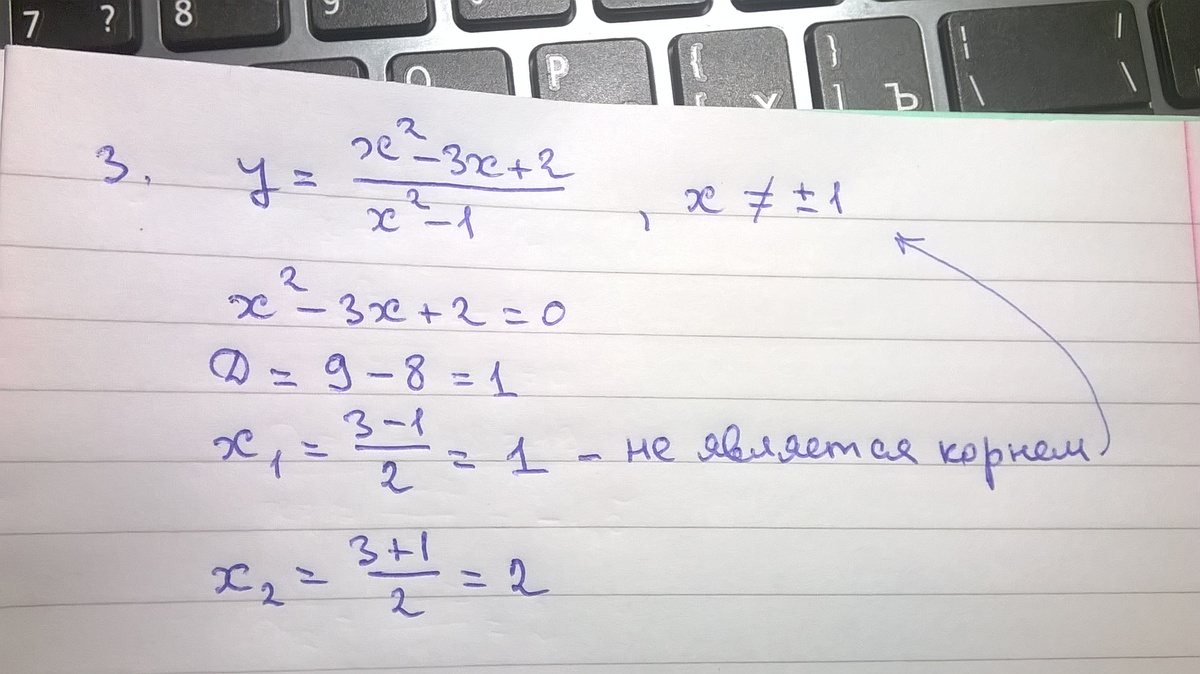 7 ? 8 9
O P { [ Х } ] Ъ ¦ / \ \
3. y = (x² - 3x + 2)/(x² - 1) , x ≠ ±1
x² - 3x + 2 = 0
D = 9 - 8 = 1
x₁ = (3 - 1)/2 = 1 - не является корнем
x₂ = (3 + 1)/2 = 2